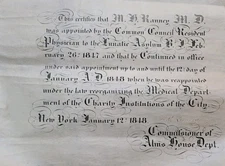 This certifies that M. H. Ranney M. D.
was appointed by the Common Council Resident
Physician to the Lunatic Asylum B. I. Feb
ruary 26th 1847 and that he Continued in office
under said appointment up to and until the 12 day of
January A. D. 1848 when he was reappointed
under the law reorganizing the Medical Depart
ment of the Charity Institutions of the City.
New York January 12th 1848
Commissioner of
Alms House Dept.